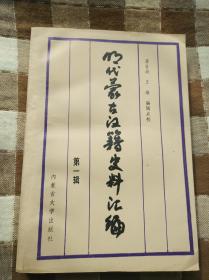 明代蒙古汉籍史料汇编
第一辑
王雄 编辑点校
内蒙古大学出版社